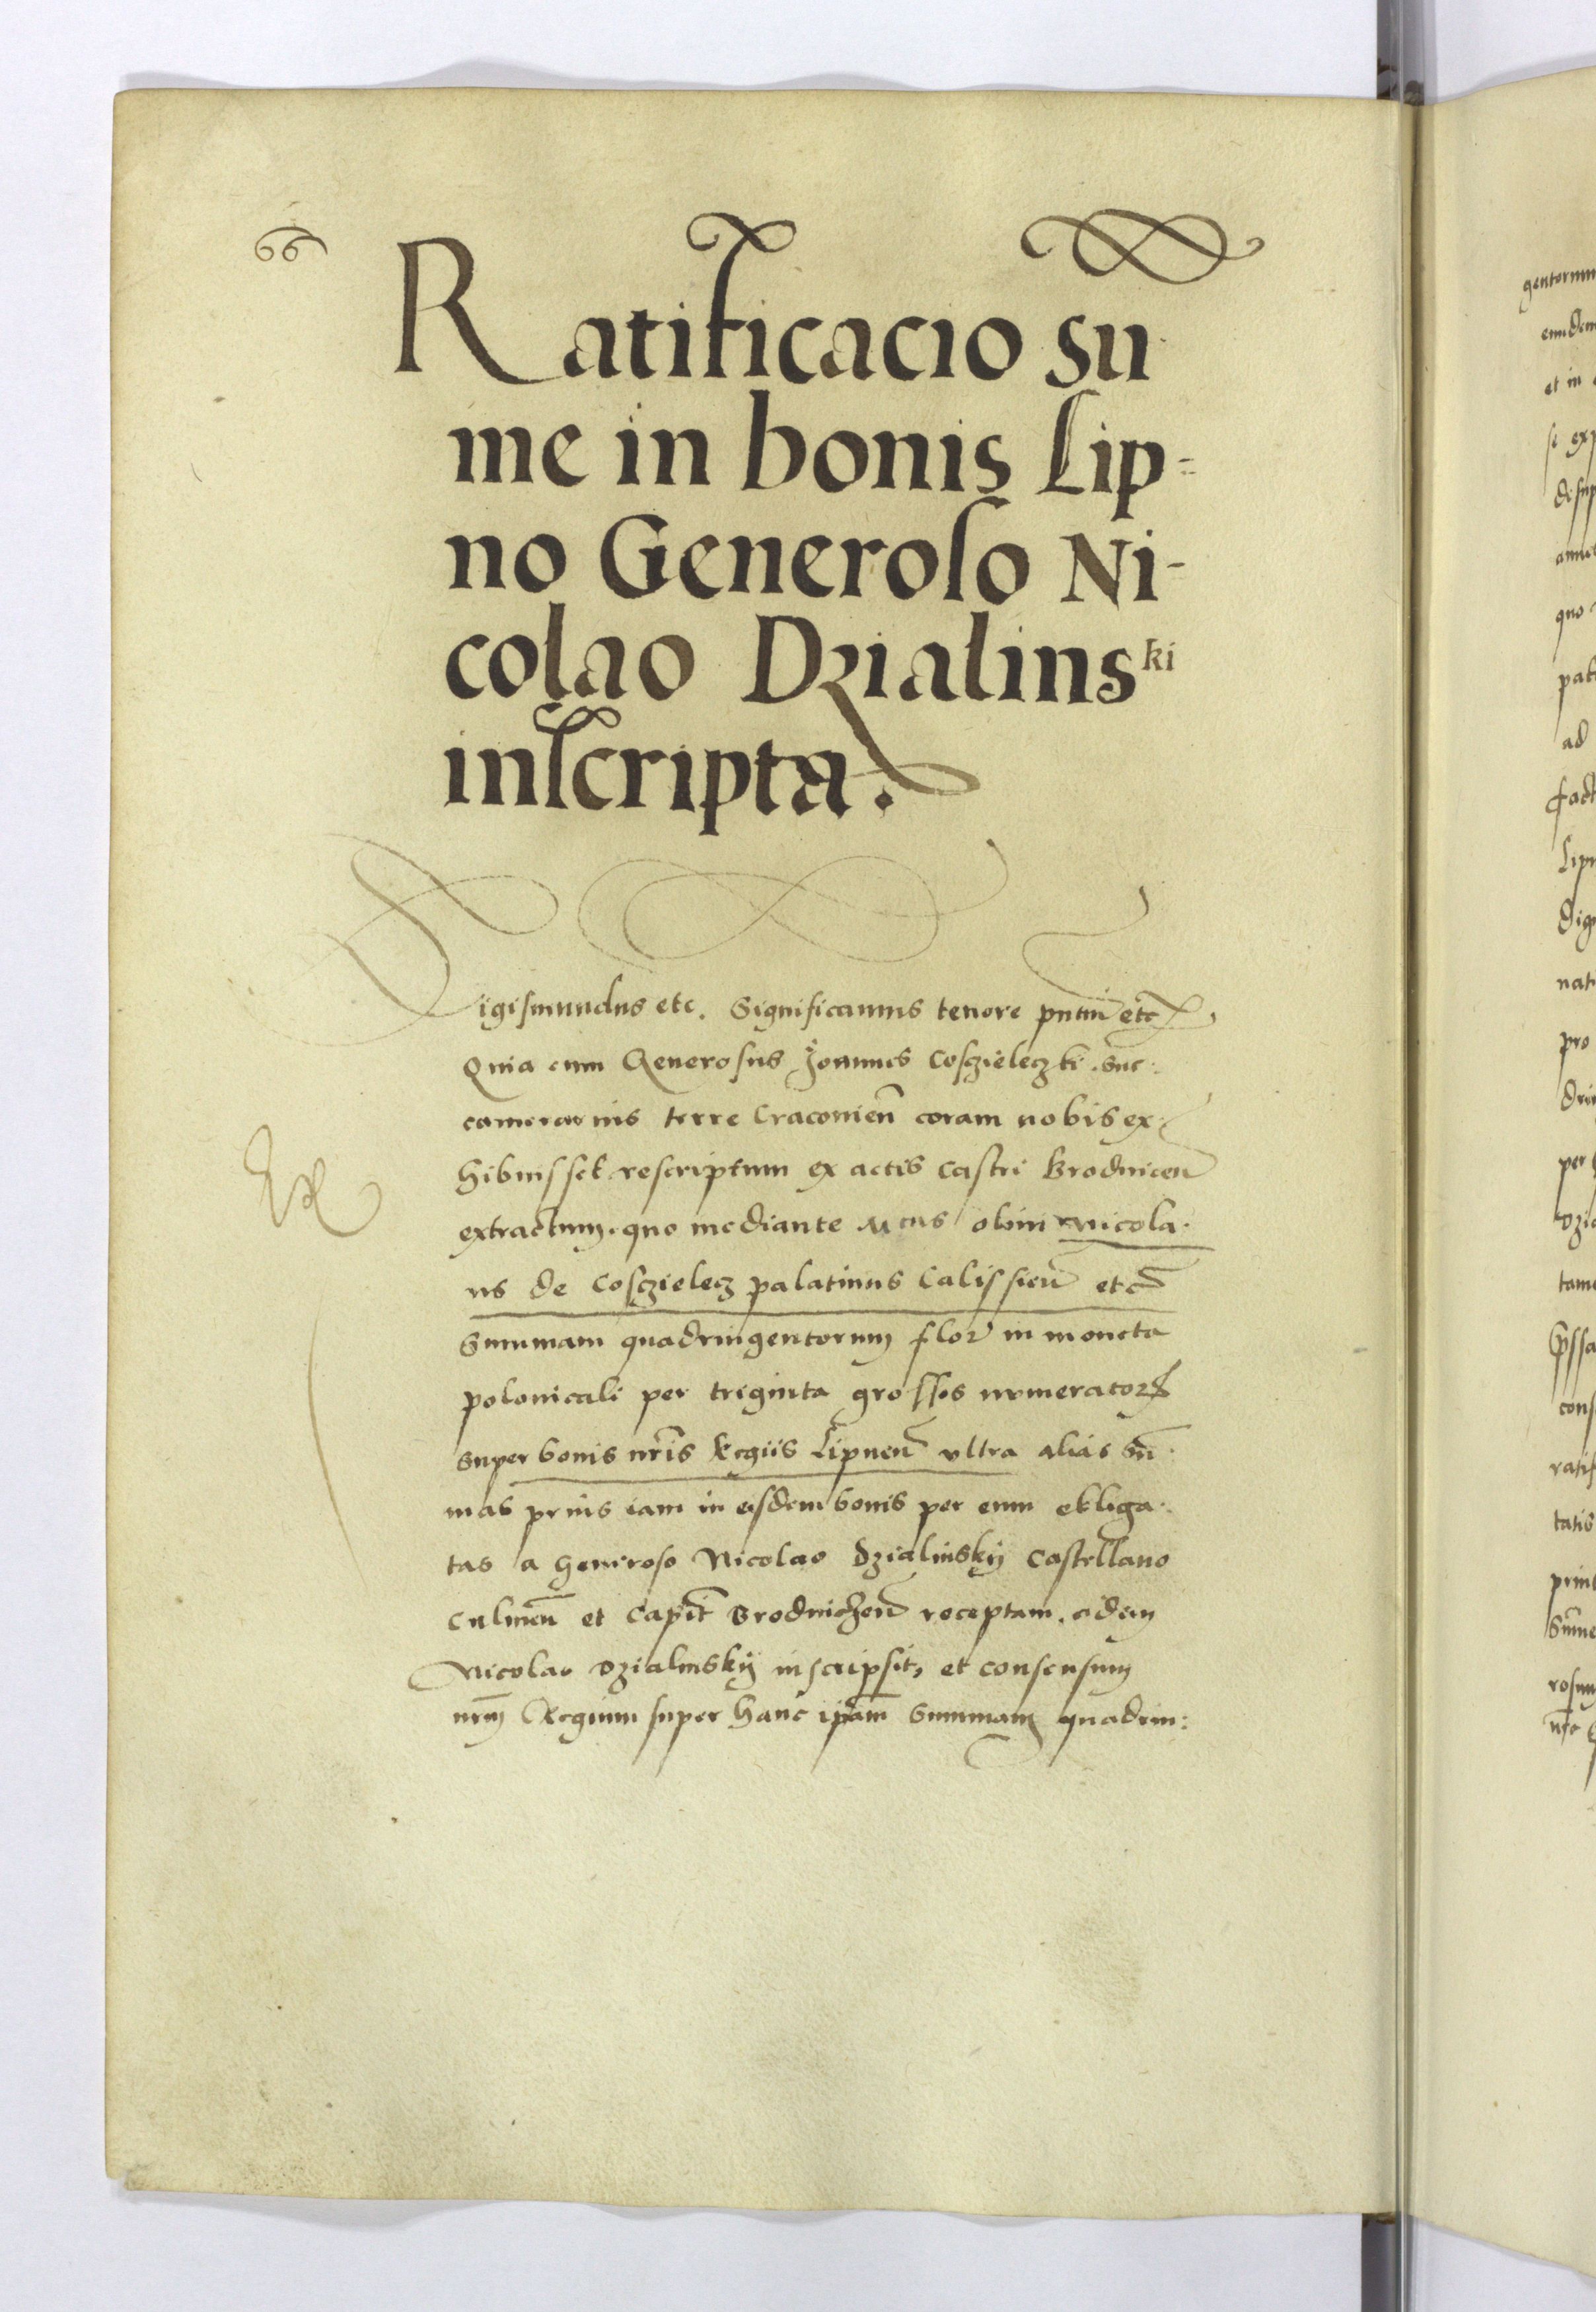 66
Ratificacio su
me in bonis Lip=
no Generoso Ni-
colao Dzialinski
inscripta.
Sigismundus etc. Significamus tenore pntiu etc.
Quia cum Generosus Joannes Coszieleczki suc:
camerarius terre Cracovien coram nobis ex:
hibuisset rescriptum ex actis castri Brodnicen
extractum, quo mediante olim Nicola:
us de Coszielecz palatinus Calissien etc
Summam quadringentorum flor in moneta
polonicali per triginta grossos numerator
super bonis nris Regiis Lipnen ultra alias su:
mas prius iam in eisdem bonis per eum obliga:
tas a generoso Nicolao Dzialinskij Castellano
Culmen et Capit Brodniczen receptam, eidem
Nicolao Dzialinskij inscripsit, et consensum
nrm Regium super hanc ipam summam quadrin: